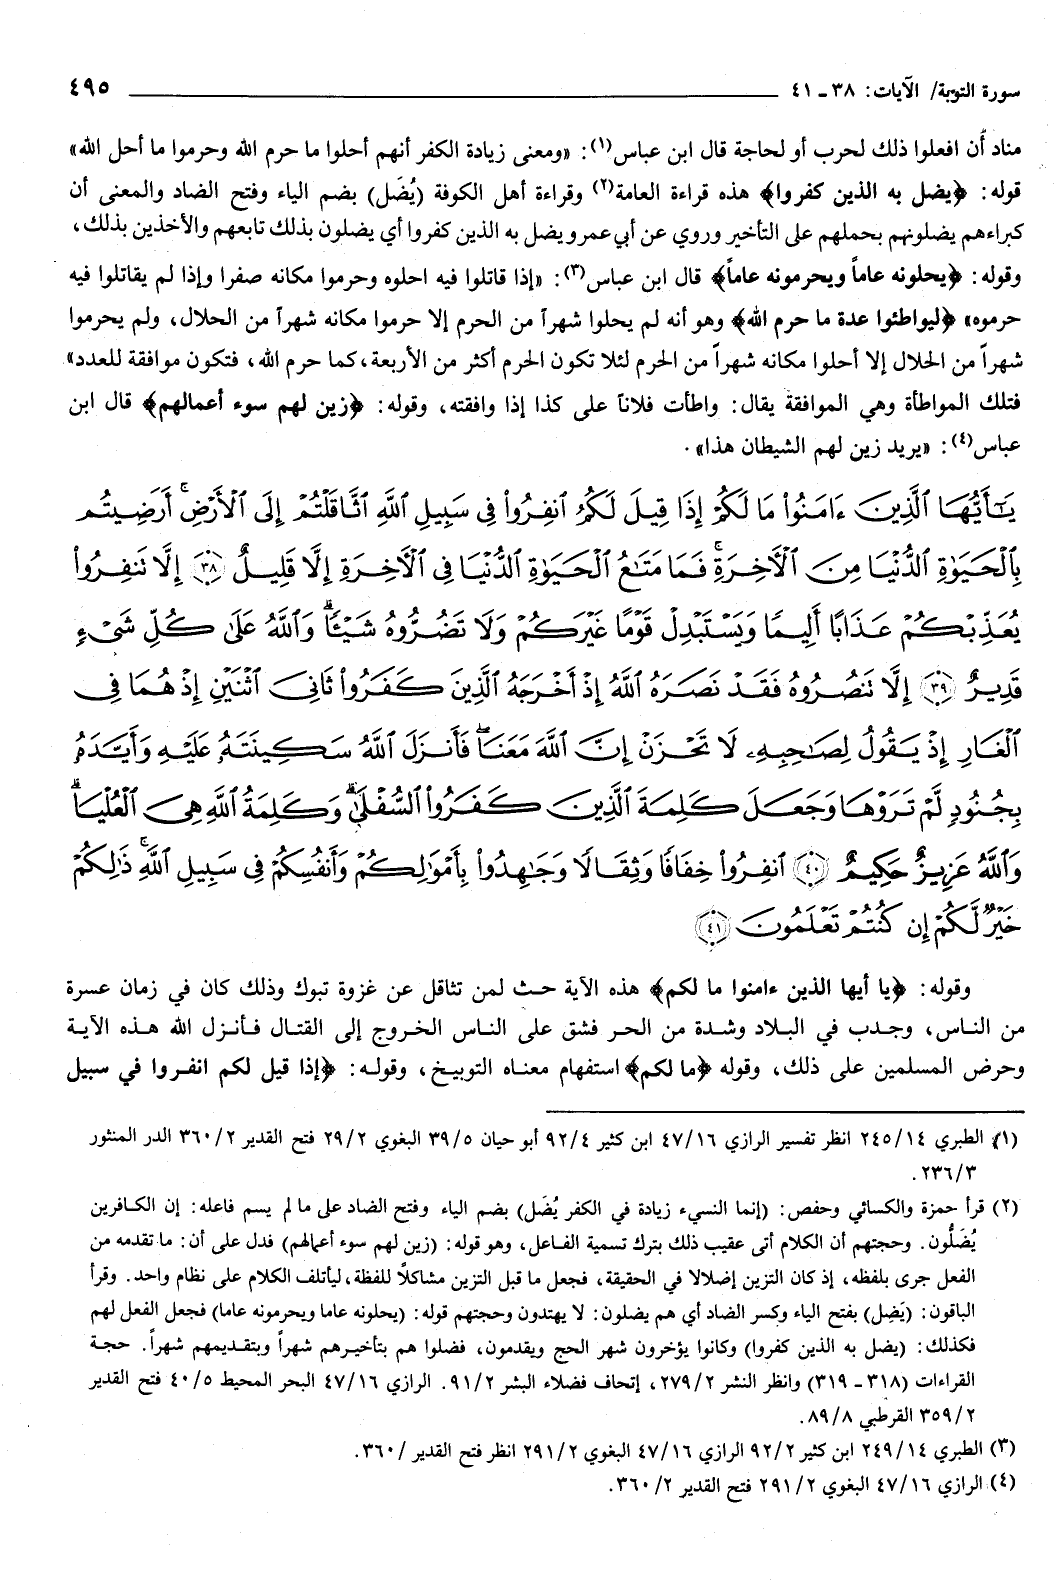 سورة التوبة/ الآيات: ٣٨ ـ ٤١ ٤٩٥
مناد أن افعلوا ذلك لحرب أو لحاجة قال ابن عباس(١): «ومعنى زيادة الكفر أنهم أحلوا ما حرم الله وحرموا ما أحل الله»
قوله: ﴿يضل به الذين كفروا﴾ هذه قراءة العامة(٢) وقراءة أهل الكوفة (يُضَل) بضم الياء وفتح الضاد والمعنى أن
كبراءهم يضلونهم بحملهم على التأخير وروي عن أبي عمرو يضل به الذين كفروا أي يضلون بذلك تابعهم والأخذين بذلك،
وقوله: ﴿يحلونه عاماً ويحرمونه عاماً﴾ قال ابن عباس(٣): «إذا قاتلوا فيه احلوه وحرموا مكانه صفرا وإذا لم يقاتلوا فيه
حرموه» ﴿ليواطئوا عدة ما حرم الله﴾ وهو أنه لم يحلوا شهراً من الحرم إلا حرموا مكانه شهراً من الحلال، ولم يحرموا
شهراً من الحلال إلا أحلوا مكانه شهراً من الحرم لئلا تكون الحرم أكثر من الأربعة، كما حرم الله، فتكون موافقة للعدد»
فتلك المواطأة وهي الموافقة يقال: واطأت فلاناً على كذا إذا وافقته، وقوله: ﴿زين لهم سوء أعمالهم﴾ قال ابن
عباس(٤): «يريد زين لهم الشيطان هذا».
يَـٰٓأَيُّهَا ٱلَّذِينَ ءَامَنُوا۟ مَا لَكُمْ إِذَا قِيلَ لَكُمُ ٱنفِرُوا۟ فِى سَبِيلِ ٱللَّهِ ٱثَّاقَلْتُمْ إِلَى ٱلْأَرْضِ ۚ أَرَضِيتُم
بِٱلْحَيَوٰةِ ٱلدُّنْيَا مِنَ ٱلْـَٔاخِرَةِ ۚ فَمَا مَتَـٰعُ ٱلْحَيَوٰةِ ٱلدُّنْيَا فِى ٱلْـَٔاخِرَةِ إِلَّا قَلِيلٌ ﴿٣٨﴾ إِلَّا تَنفِرُوا۟
يُعَذِّبْكُمْ عَذَابًا أَلِيمًا وَيَسْتَبْدِلْ قَوْمًا غَيْرَكُمْ وَلَا تَضُرُّوهُ شَيْـًٔا ۗ وَٱللَّهُ عَلَىٰ كُلِّ شَىْءٍ
قَدِيرٌ ﴿٣٩﴾ إِلَّا تَنصُرُوهُ فَقَدْ نَصَرَهُ ٱللَّهُ إِذْ أَخْرَجَهُ ٱلَّذِينَ كَفَرُوا۟ ثَانِىَ ٱثْنَيْنِ إِذْ هُمَا فِى
ٱلْغَارِ إِذْ يَقُولُ لِصَـٰحِبِهِۦ لَا تَحْزَنْ إِنَّ ٱللَّهَ مَعَنَا ۖ فَأَنزَلَ ٱللَّهُ سَكِينَتَهُۥ عَلَيْهِ وَأَيَّدَهُۥ
بِجُنُودٍ لَّمْ تَرَوْهَا وَجَعَلَ كَلِمَةَ ٱلَّذِينَ كَفَرُوا۟ ٱلسُّفْلَىٰ ۗ وَكَلِمَةُ ٱللَّهِ هِىَ ٱلْعُلْيَا ۗ
وَٱللَّهُ عَزِيزٌ حَكِيمٌ ﴿٤٠﴾ ٱنفِرُوا۟ خِفَافًا وَثِقَالًا وَجَـٰهِدُوا۟ بِأَمْوَٰلِكُمْ وَأَنفُسِكُمْ فِى سَبِيلِ ٱللَّهِ ۚ ذَٰلِكُمْ
خَيْرٌ لَّكُمْ إِن كُنتُمْ تَعْلَمُونَ ﴿٤١﴾
وقوله: ﴿يا أيها الذين ءامنوا ما لكم﴾ هذه الآية حث لمن تثاقل عن غزوة تبوك وذلك كان في زمان عسرة
من الناس، وجدب في البلاد وشدة من الحر فشق على الناس الخروج إلى القتال فأنزل الله هذه الآية
وحرض المسلمين على ذلك، وقوله ﴿ما لكم﴾ استفهام معناه التوبيخ، وقوله: ﴿إذا قيل لكم انفروا في سبيل
(١) الطبري ٢٤٥/١٤ انظر تفسير الرازي ٤٧/١٦ ابن كثير ٩٢/٤ أبو حيان ٣٩/٥ البغوي ٢٩/٢ فتح القدير ٣٦٠/٢ الدر المنثور
٢٣٦/٣.
(٢) قرأ حمزة والكسائي وحفص: (إنما النسيء زيادة في الكفر يُضَل) بضم الياء وفتح الضاد على ما لم يسم فاعله: إن الكافرين
يُضَلُّون. وحجتهم أن الكلام أتى عقيب ذلك بترك تسمية الفاعل، وهو قوله: (زين لهم سوء أعمالهم) فدل على أن: ما تقدمه من
الفعل جرى بلفظه، إذ كان التزين إضلالا في الحقيقة، فجعل ما قبل التزين مشاكلاً للفظة، ليأتلف الكلام على نظام واحد. وقرأ
الباقون: (يَضِل) بفتح الياء وكسر الضاد أي هم يضلون: لا يهتدون وحجتهم قوله: (يحلونه عاما ويحرمونه عاما) فجعل الفعل لهم
فكذلك: (يضل به الذين كفروا) وكانوا يؤخرون شهر الحج ويقدمون، فضلوا هم بتأخيرهم شهراً وبتقديمهم شهراً. حجة
القراءات (٣١٨ ـ ٣١٩) وانظر النشر ٢٧٩/٢، إتحاف فضلاء البشر ٩١/٢. الرازي ٤٧/١٦ البحر المحيط ٤٠/٥ فتح القدير
٣٥٩/٢ القرطبي ٨٩/٨.
(٣) الطبري ٢٤٩/١٤ ابن كثير ٩٢/٢ الرازي ٤٧/١٦ البغوي ٢٩١/٢ انظر فتح القدير /٣٦٠.
(٤) الرازي ٤٧/١٦ البغوي ٢٩١/٢ فتح القدير ٣٦٠/٢.